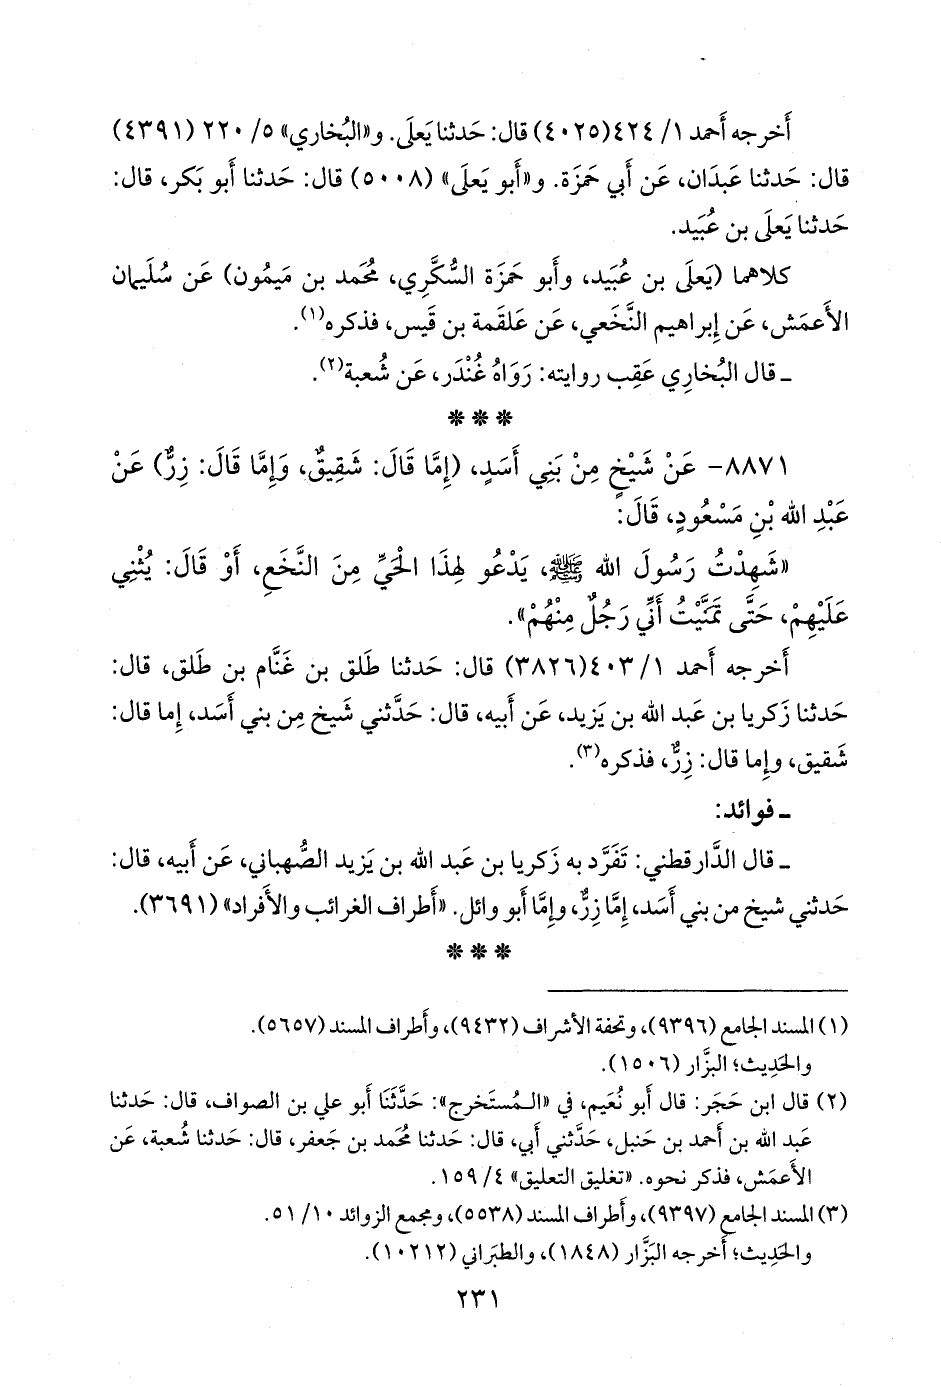 أَخرجه أَحمد ١/ ٤٢٤(٤٠٢٥) قال: حَدثنا يَعلَى. و«البُخاري» ٥/ ٢٢٠ (٤٣٩١)
قال: حَدثنا عَبدَان، عَن أَبي حَمزَة. و«أَبو يَعلَى» (٥٠٠٨) قال: حَدثنا أَبو بَكر، قال:
حَدثنا يَعلَى بن عُبَيد.
كلاهما (يَعلَى بن عُبَيد، وأَبو حَمزَة السُّكَّرِي، مُحَمد بن مَيمُون) عَن سُلَيمان
الأَعمَش، عَن إِبراهيم النَّخَعي، عَن عَلقَمة بن قَيس، فذكره(١).
ـ قال البُخاري عَقِب روايته: رَوَاهُ غُنْدَر، عَن شُعبة(٢).
***
٨٨٧١- عَنْ شَيْخٍ مِنْ بَنِي أَسَدٍ، (إِمَّا قَالَ: شَقِيقٌ، وَإِمَّا قَالَ: زِرٌّ) عَنْ
عَبْدِ الله بْنِ مَسْعُودٍ، قَالَ:
«شَهِدْتُ رَسُولَ الله ﷺ، يَدْعُو لِهَذَا الْحَيِّ مِنَ النَّخَعِ، أَوْ قَالَ: يُثْنِي
عَلَيْهِمْ، حَتَّى تَمَنَّيْتُ أَنِّي رَجُلٌ مِنْهُمْ».
أَخرجه أَحمد ١/ ٤٠٣(٣٨٢٦) قال: حَدثنا طَلق بن غَنَّام بن طَلق، قال:
حَدثنا زَكريا بن عَبد الله بن يَزيد، عَن أَبيه، قال: حَدَّثني شَيخ مِن بني أَسَد، إِما قال:
شَقيق، وإِما قال: زِرٌّ، فذكره(٣).
ـ فوائد:
ـ قال الدَّارقطني: تَفَرَّد به زَكريا بن عَبد الله بن يَزيد الصُّهباني، عَن أَبيه، قال:
حَدثني شيخ من بني أَسَد، إِمَّا زِرٌّ، وإِمَّا أَبو وائل. «أَطراف الغرائب والأَفراد» (٣٦٩١).
***
(١) المسند الجامع (٩٣٩٦)، وتحفة الأَشراف (٩٤٣٢)، وأَطراف المسند (٥٦٥٧).
والحَدِيث؛ البزَّار (١٥٠٦).
(٢) قال ابن حَجَر: قال أَبو نُعَيم، في «المُستَخرج»: حَدَّثَنَا أَبو علي بن الصواف، قال: حَدثنا
عَبد الله بن أَحمد بن حَنبل، حَدَّثني أَبي، قال: حَدثنا مُحَمد بن جَعفر، قال: حَدثنا شُعبة، عَن
الأَعمَش، فذكر نحوه. «تغليق التعليق» ٤/ ١٥٩.
(٣) المسند الجامع (٩٣٩٧)، وأَطراف المسند (٥٥٣٨)، ومجمع الزوائد ١٠/ ٥١.
والحَدِيث؛ أَخرجه البَزَّار (١٨٤٨)، والطبَراني (١٠٢١٢).
٢٣١